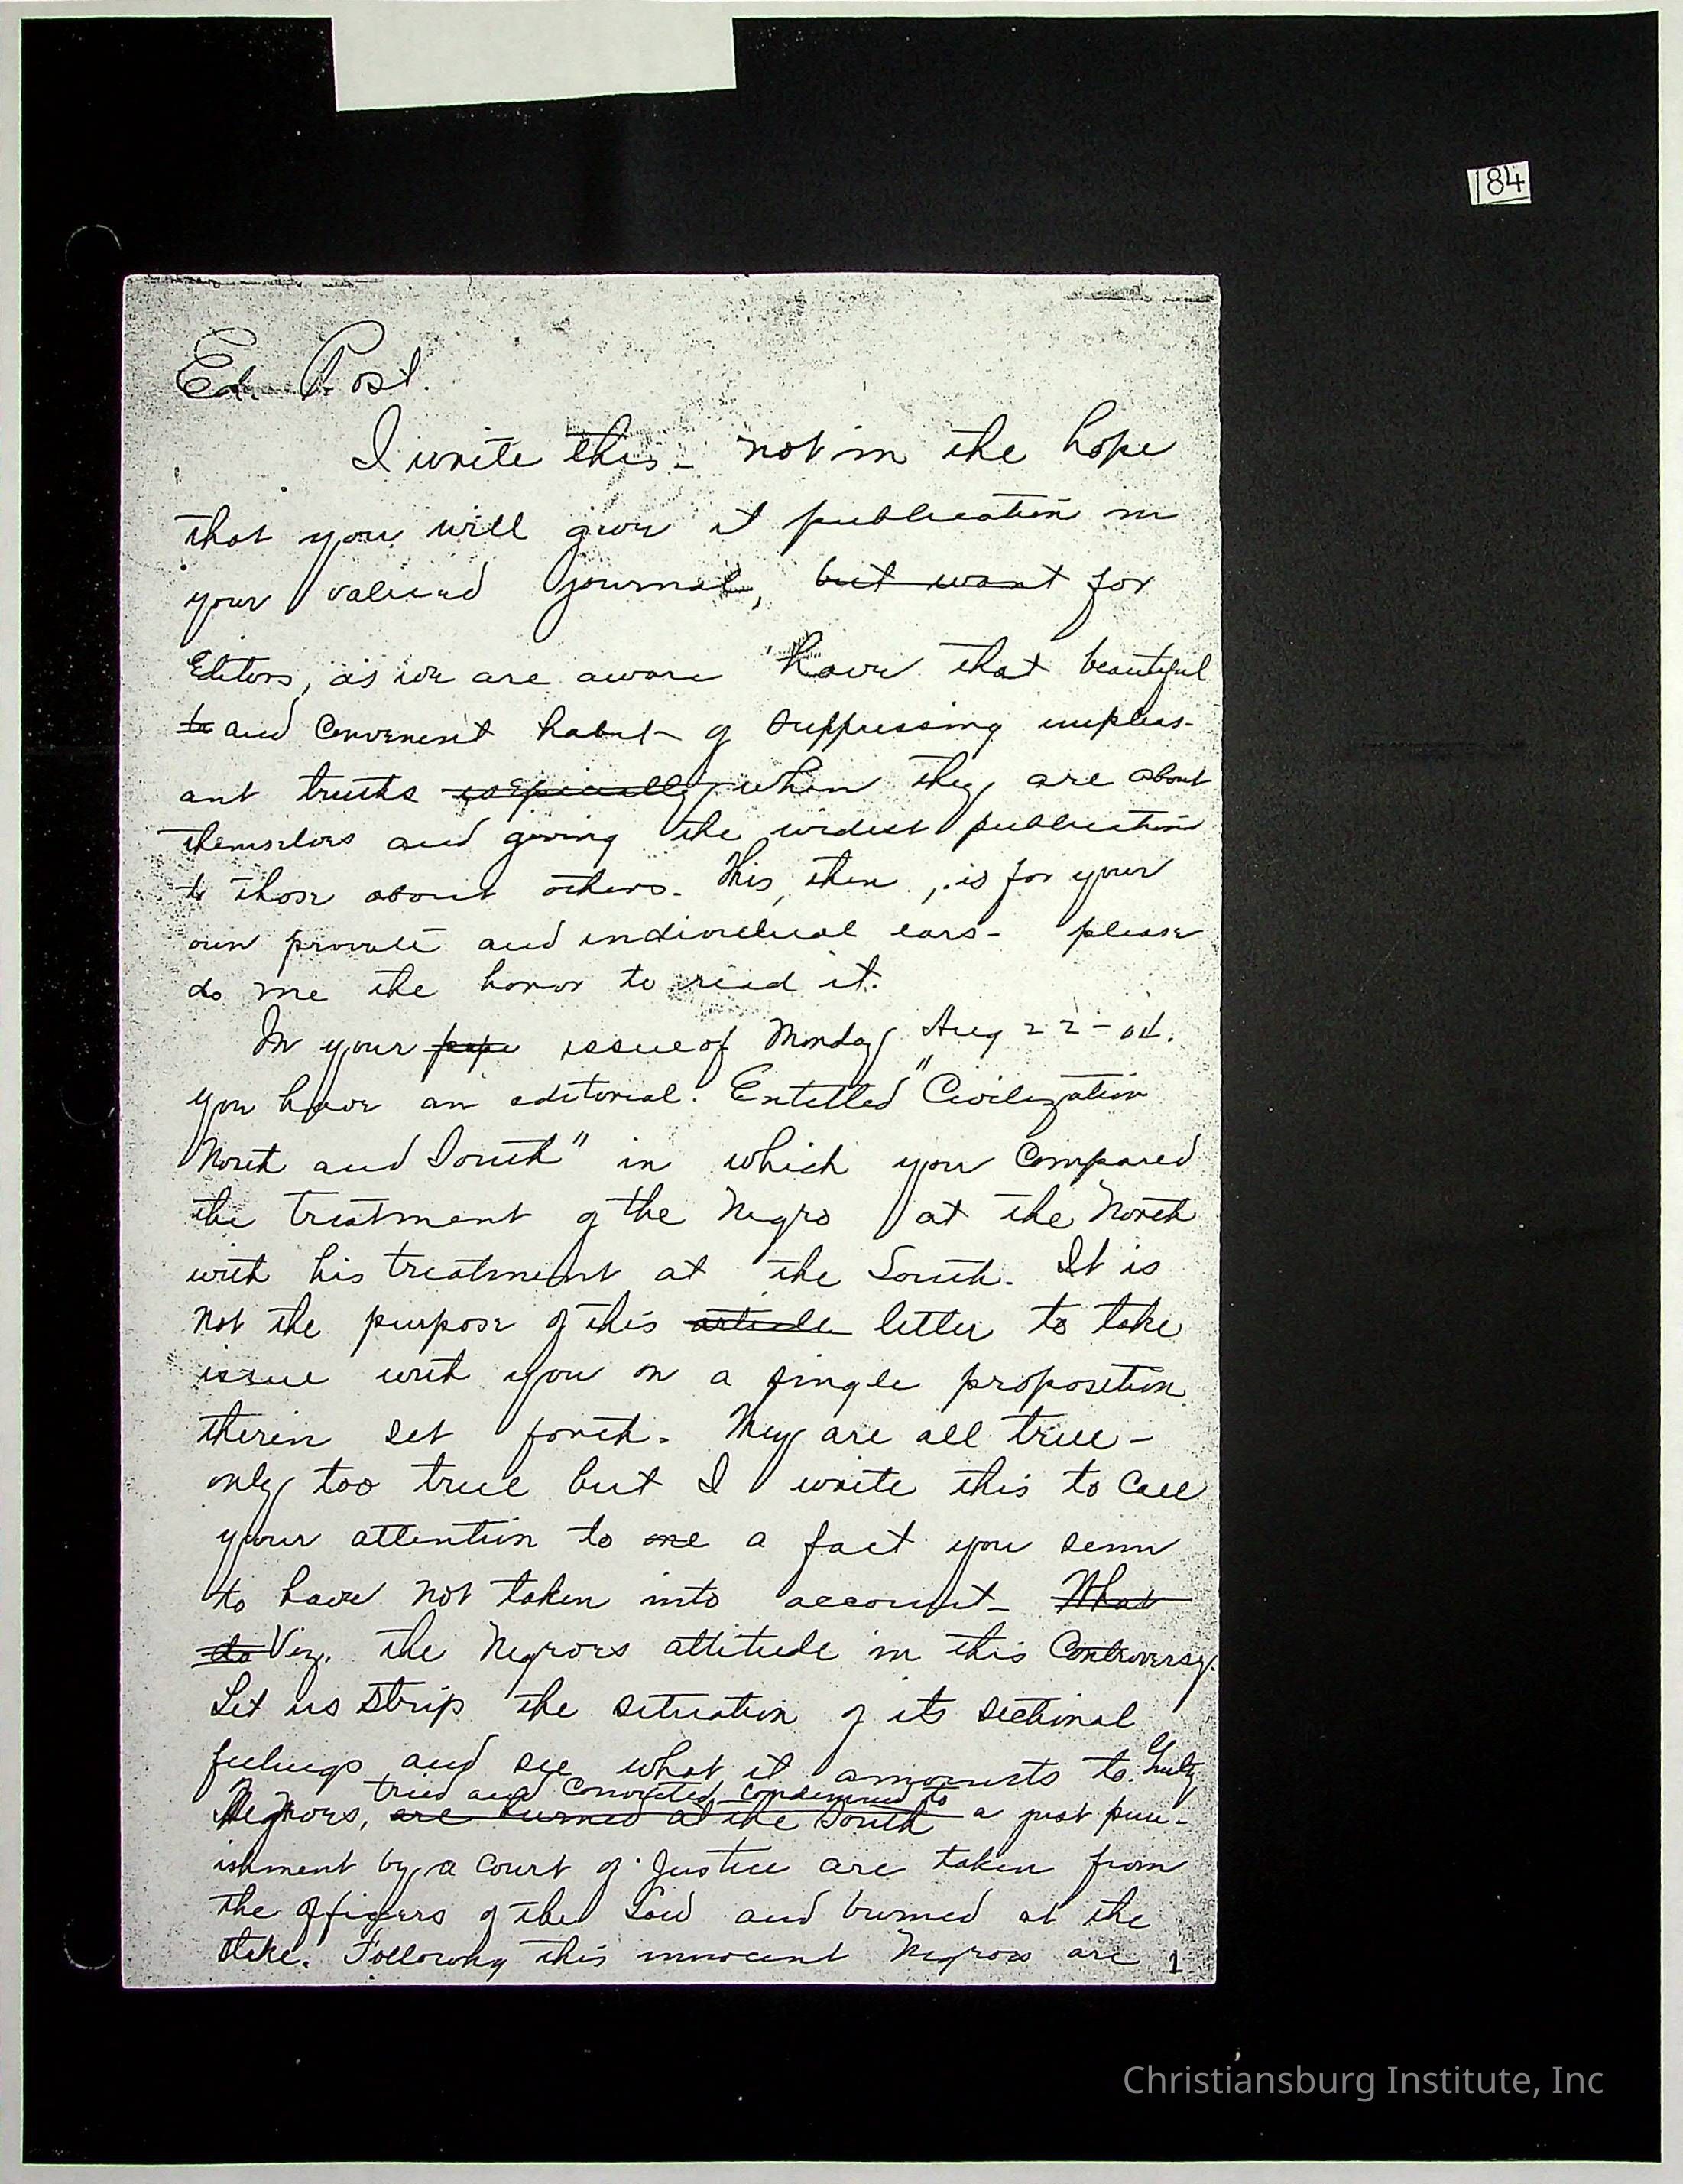 184
Ed. Post.
I write this - not in the hope
that you will give it publication in
your valued journal, but want for
Editors, as we are aware have that beautiful
to and convenient habit of suppressing unpleas-
ant truths especially when they are about
themselves and giving the widest publication
to those about others. This, then, is for your
own private and individual ears - please
do me the honor to read it.
In your pape issue of Monday Aug 22 - 04.
you have an editorial. Entitled "Civilization
North and South" in which you compared
the treatment of the Negro at the North
with his treatment at the South. It is
not the purpose of this article letter to take
issue with you on a single proposition
therein set forth. They are all true -
only too true but I write this to call
your attention to one a fact you seem
to have not taken into account - What
do Viz. the Negroes attitude in this Controversy.
Let us strip the situation of its sectional
feelings and see what it amounts to. Guilty
tried and convicted, condemned to
Negroes, are burned at the South a just pun-
ishment by a court of Justice are taken from
the officers of the Law and burned at the
stake. Following this innocent Negroes are 1
Christiansburg Institute, Inc